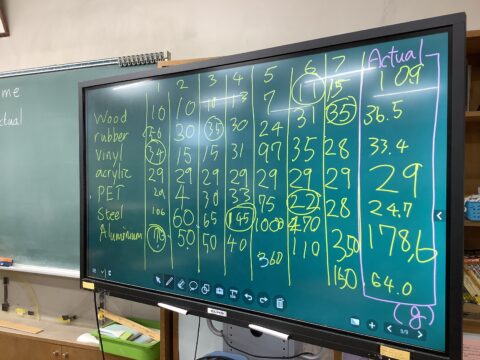 me
ctual
1 2 3 4 5 6 7 Actual
Wood 10 10 10 13 7 11 15 10.9
rubber 30 35 30 24 31 35 36.5
vinyl 34 15 15 31 97 35 28 33.4
acrylic 29 29 29 29 29 29 29 29
PET 29 4 30 33 75 22 28 24.7
Steel 106 60 65 145 1000 470 350 178.6
Aluminium 50 50 40 360 110 160 64.0
(g)